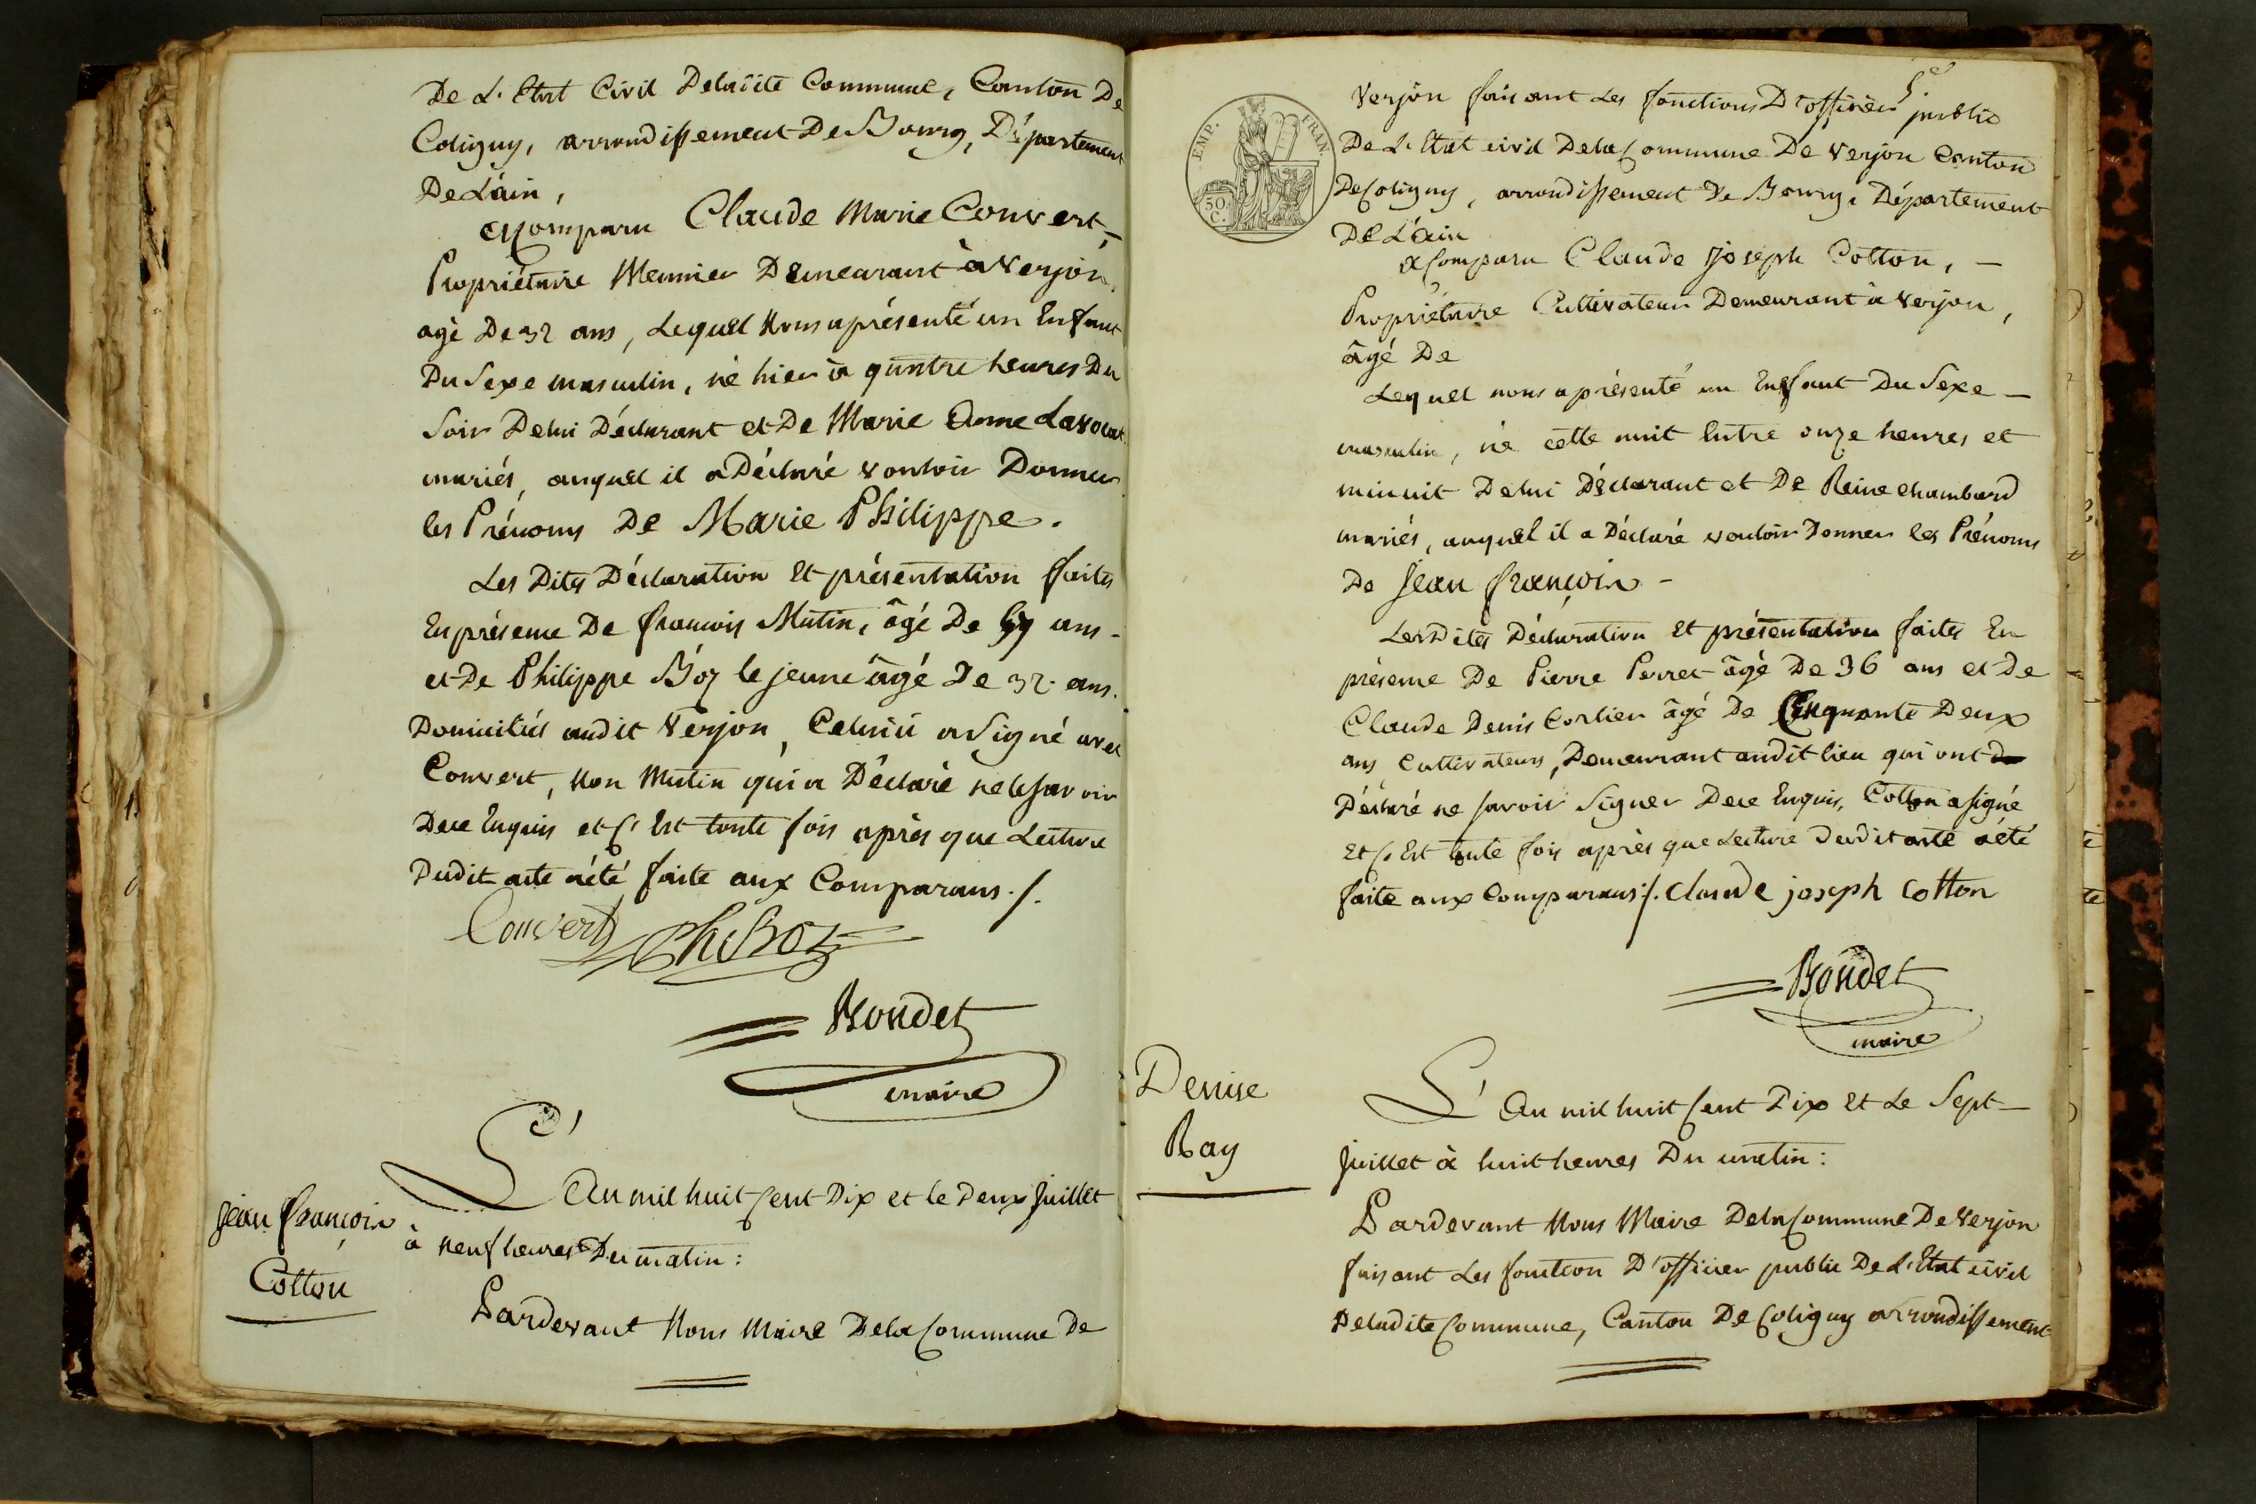 De L'Etat Civil Deladite Commune, Canton De
Coligny, arrondissement De Bourg, Département
De L'ain,
a Comparu Claude Marie Convert,
Propriétaire Meunier Demeurant à Verjon,
agé De 32 ans, Lequel Nous a présenté un Enfant
Du Sexe masculin, né hier à quatre heures Du
Soir De lui Déclarant et De Marie Anne Lavocat
mariés, auquel il a Déclaré vouloir Donner
les Prénoms De Marie Philippe.
Les Dites Déclaration Et présentation faites
En présence De françois Mutin, âgé De ans
et De Philippe Böz le jeune âgé De 32 ans.
Domiciliés audit Verjon, Celui ci a Signé avec
Convert, Non Mutin qui a Déclaré ne le savoir
De ce Enquis et C'Est toute fois après que Lecture
Dudit acte a été faite aux Comparans ./.
Convert Ph Boz
Bondet
maire
Jean françois
Cotton
L'An mil huit Cent Dix et le Deux Juillet
à neuf heures Du matin :
Pardevant Nous Maire Dela Commune De
EMP. FRAN.
50 C.
Verjon faisant Les fonctions D'officier public
De L'Etat civil Dela Commune De Verjon Canton
De Coligny, arrondissement De Bourg, Département
De L'ain
a Comparu Claude Joseph Cotton,
Propriétaire Cultivateur Demeurant à Verjon,
âgé De
Lequel nous a présenté un Enfant Du Sexe
masculin, né cette nuit Entre onze heures et
minuit De lui Déclarant et De Reine chambard
mariés, auquel il a Déclaré vouloir Donner les Prénoms
De Jean françois
Les Dites Déclaration Et présentation faites En
présence De Pierre Perret âgé De 36 ans et De
Claude Denis Cortier âgé De Cinquante Deux
ans Cultivateurs, Demeurant audit lieu qui ont
Déclaré ne savoir Signer De ce Enquis, Cotton a signé
Et C'Est toute fois après que Lecture Dudit acte a été
faite aux Comparans ./. Claude joseph Cotton
Bondet
maire
Denise
Ray
L'An mil huit Cent Dix Et Le Sept
Juillet à huit heures Du matin :
Pardevant Nous Maire Dela Commune De Verjon
faisant Les fonction D'officier public De L'Etat civil
Deladite Commune, Canton De Coligny arrondissement